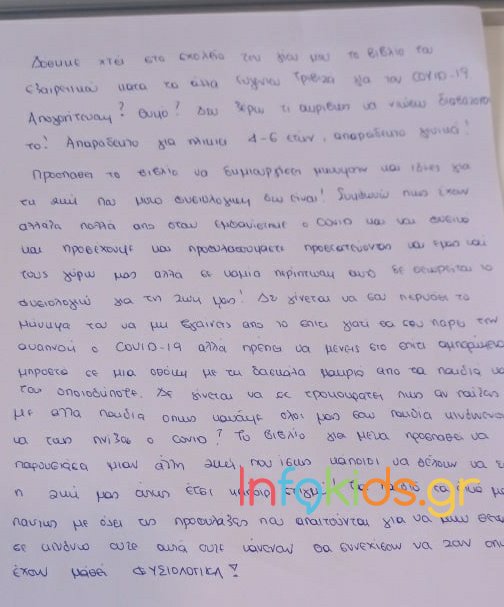 Δόθηκε χτες στα σχολεία του γιου μου το βιβλίο του
εξαιρετικού κατά τα άλλα Ευγένιου Τριβιζά για τον COVID-19
Απογοήτευση? Θυμό? Δεν ξέρω τι ακριβώς να νιώσω διαβάζοντας
το! Απαράδεκτο για ηλικίες 4-6 ετών, απαράδεκτο γενικά!
Προσπαθεί το βιβλίο να δημιουργήσει μηνύματα και ιδέες για
τη ζωή που μόνο φυσιολογική δεν είναι! Συμφωνώ πως έχουν
αλλάξει πολλά από όταν εμφανίστηκε ο COVID και ναι
και προσέχουμε και προφυλασσόμαστε προστατεύοντας και εμάς και
τους γύρω μας αλλά σε καμία περίπτωση αυτό δε θεωρείται το
φυσιολογικό για τη ζωή μας! Δε γίνεται να σου περνάει το
μήνυμα του να μη βγαίνεις από το σπίτι γιατί θα σου πάρει την
αναπνοή ο COVID-19 αλλά πρέπει να μένεις στο σπίτι αμπαρωμένος
μπροστά σε μια οθόνη με τη δασκάλα μακριά από τα παιδιά και
τον οποιοδήποτε. Δε γίνεται να σε τρομοκρατεί πως αν παίξεις
με άλλα παιδιά όπως κάναμε όλοι μας σαν παιδιά κινδυνεύεις
να σας πνίξει ο COVID? Το βιβλίο για μένα προσπαθεί να
παρουσιάσει μιαν άλλη ζωή που ίσως κάποιοι να θέλουν να
η ζωή μας όπως έτσι
πάντως με όλες τις προφυλάξεις που απαιτούνται για να μην θέτω
σε κίνδυνο ούτε αυτά ούτε κανέναν θα συνεχίσουν να ζουν όπως
έχουν μάθει ΦΥΣΙΟΛΟΓΙΚΑ!
Infokids.gr